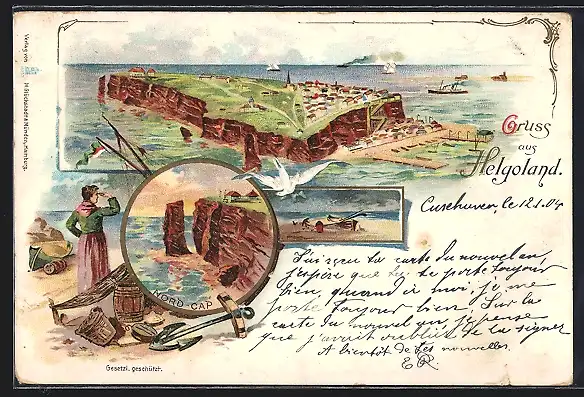 Verlag von
Gruss
aus
Helgoland.
Cuxhaven, le 12.1.04
J'ai reçu ta carte du nouvel an,
j'espère que tu te porte toujours
bien, quand à moi, je me
porte toujours bien. Sur la
carte du nouvel an, je pense
que j'avait oublié de la signer
A bientôt de tes nouvelles
ER
NORD-CAP
Gesetzl. geschützt.